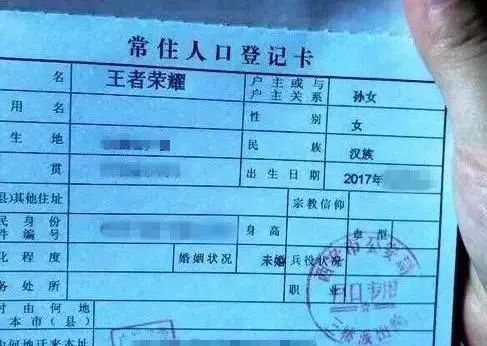 常住人口登记卡
名 王者荣耀 户主或与户主关系 孙女
用名 性别 女
生地 民族 汉族
贯 出生日期 2017年
县)其他住址 宗教信仰
民身份
件编号 身高 血型
化程度 婚姻状况 未婚 兵役状况
务处所 职业
时由何地
本市(县)
何地迁来本址
市公安局
户口专用
派出所